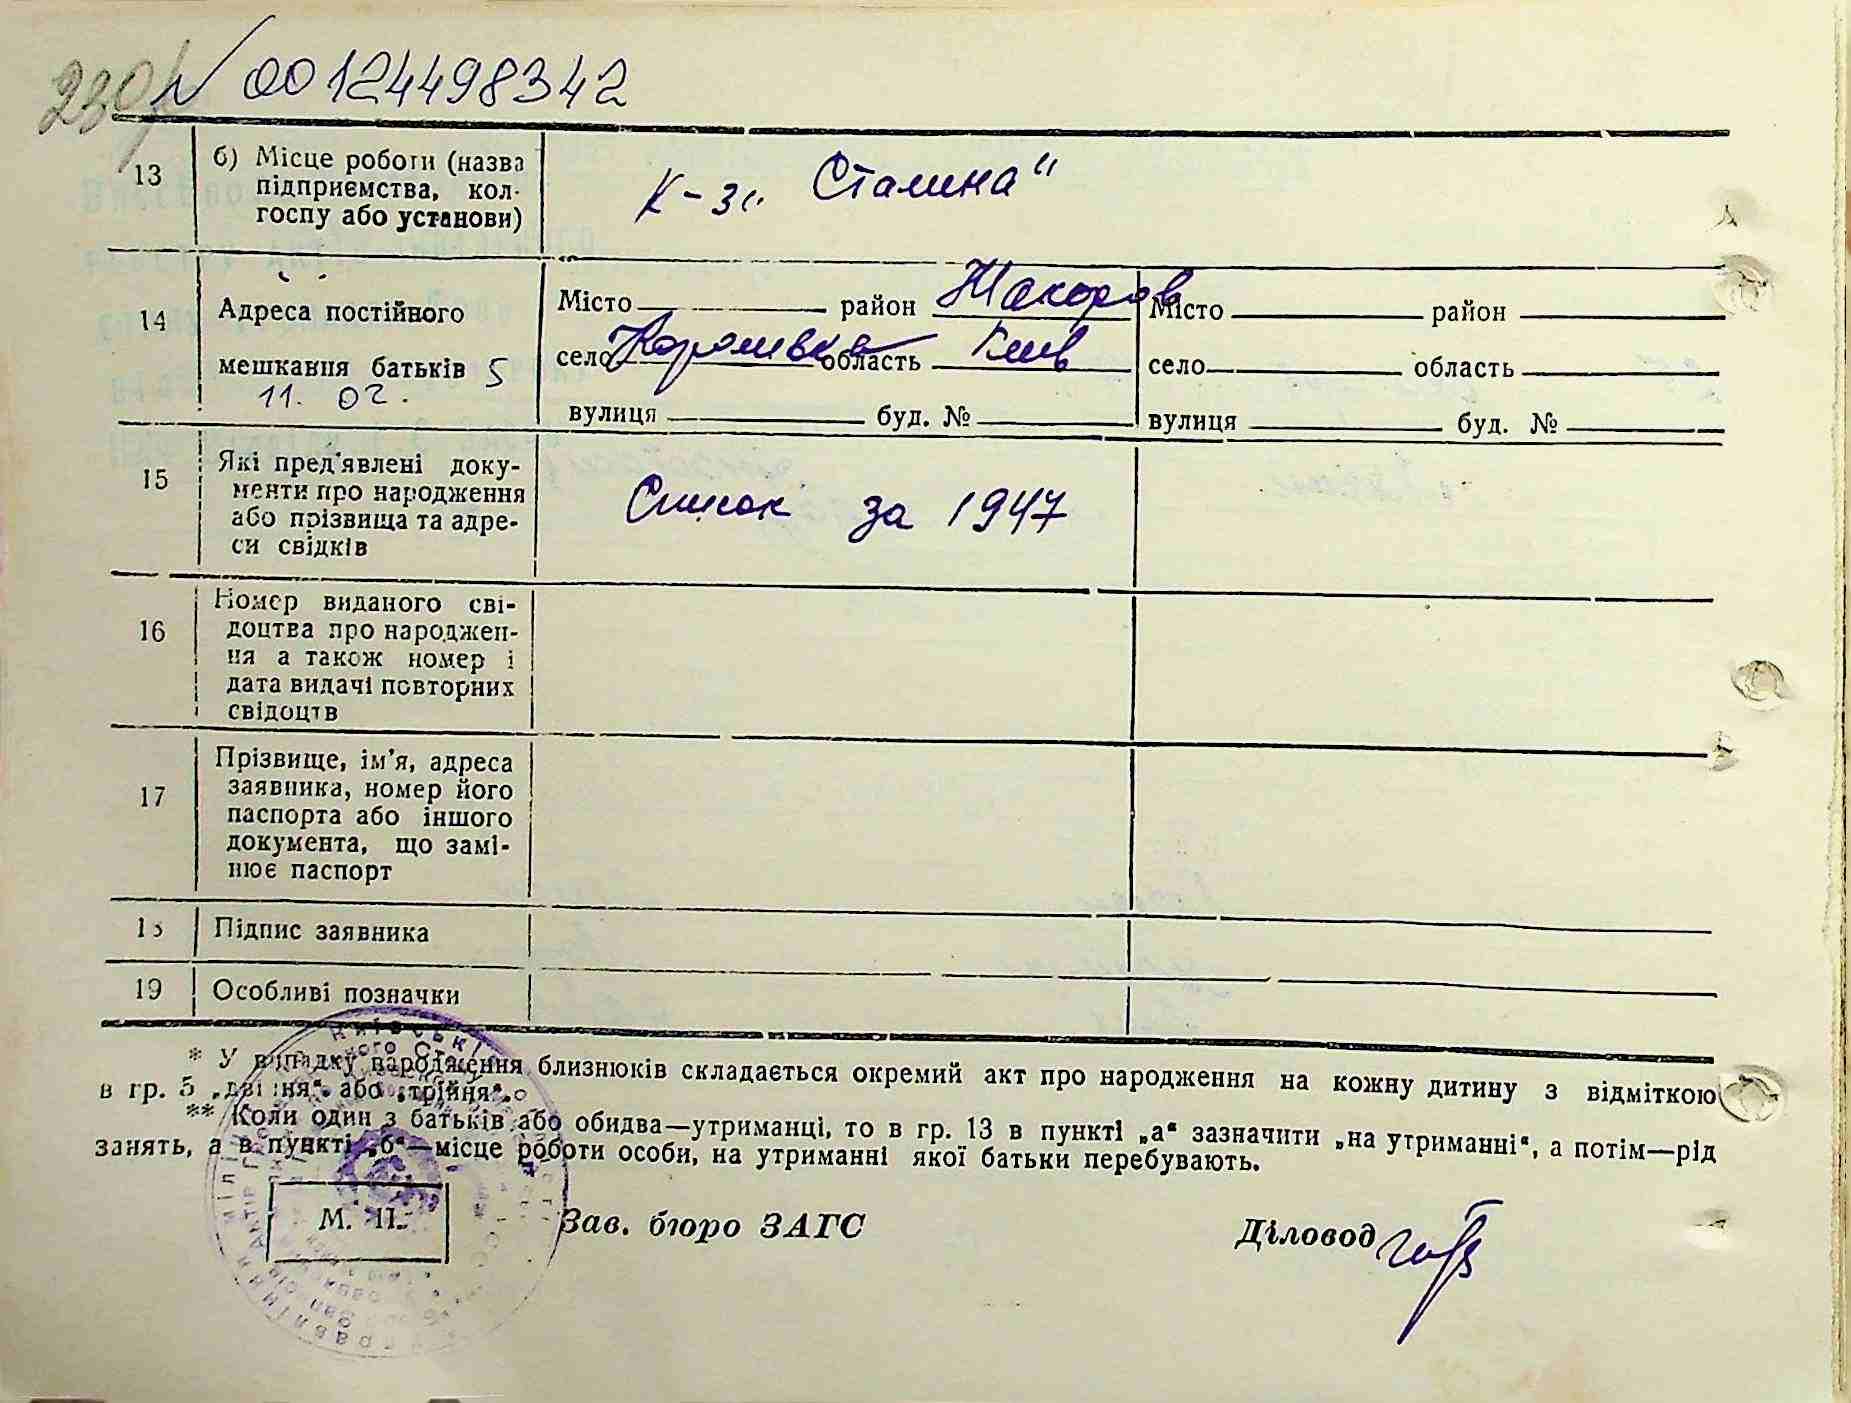 230/ № 00124498342
13 б) Місце роботи (назва
підприємства, кол-
госпу або установи)
К-з „ Сталина"
14 Адреса постійного
мешкання батьків 5
11. 02.
Місто район Макаров
село Королівка область Київ
вулиця буд. №
Місто район
село область
вулиця буд. №
15 Які пред'явлені доку-
менти про народження
або прізвища та адре-
си свідків
Список за 1947
16 Номер виданого сві-
доцтва про народжен-
ня а також номер і
дата видачі повторних
свідоцтв
17 Прізвище, ім'я, адреса
заявника, номер його
паспорта або іншого
документа, що замі-
нює паспорт
18 Підпис заявника
19 Особливі позначки
* У випадку народження близнюків складається окремий акт про народження на кожну дитину з відміткою
в гр. 5 „двійня“ або „трійня“.
** Коли один з батьків або обидва—утриманці, то в гр. 13 в пункті „а“ зазначити „на утриманні“, а потім—рід
занять, а в пункті „б“—місце роботи особи, на утриманні якої батьки перебувають.
М. П.
Зав. бюро ЗАГС
Діловод